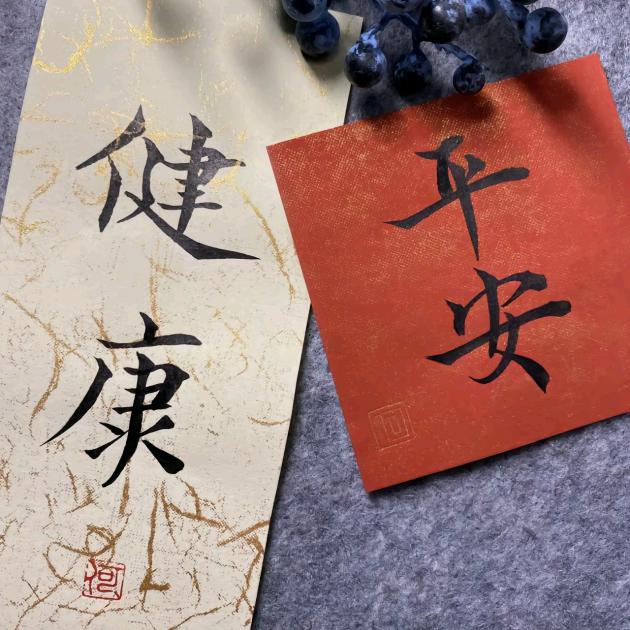 健
康
何
平
安